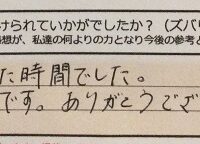 けられていかがでしたか？（ズバリ
感想が、私達の何よりの力となり今後の参考と
た時間でした。
です。ありがとうござ